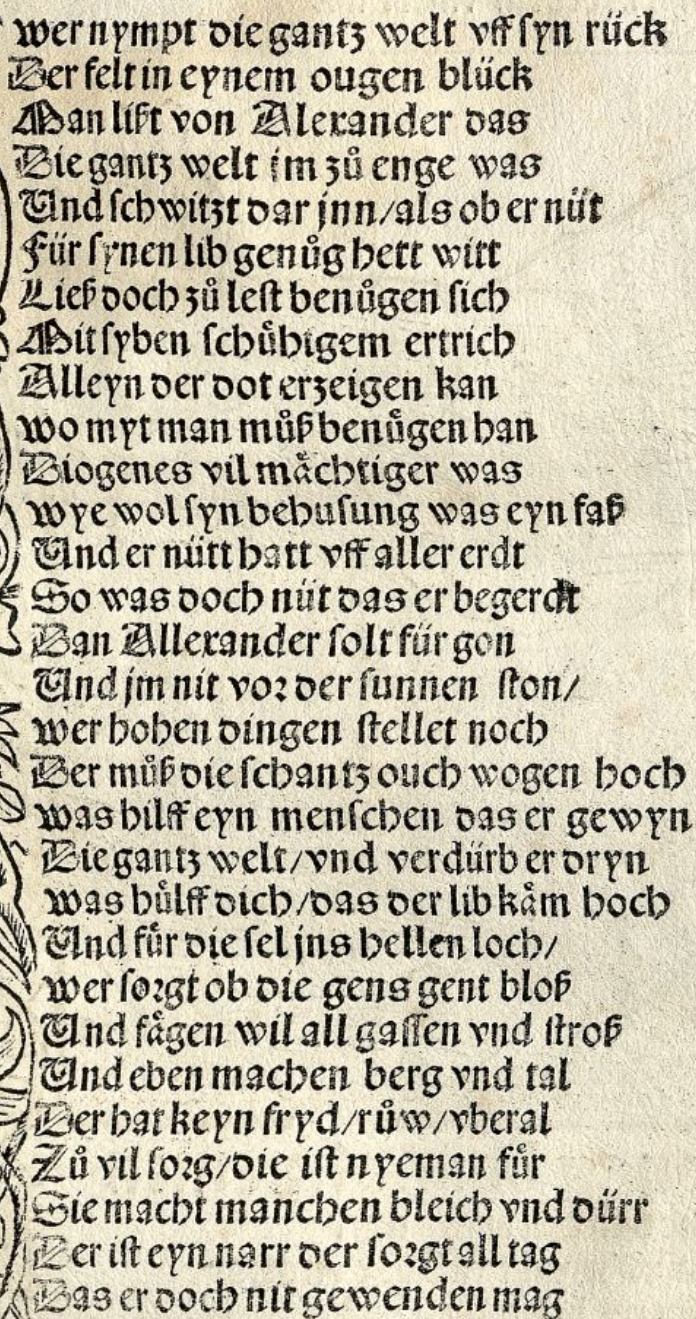 wer nympt die gantz welt vff syn rück
Der felt in eynem ougen blück
Man lißt von Alexander das
Die gantz welt jm zů enge was
Und schwitzt dar jnn/als ob er nüt
Für synen lib genůg hett witt
Ließ doch zů lest benůgen sich
Mit syben schůhigem ertrich
Alleyn der dot erzeigen kan
wo myt man můß benůgen han
Diogenes vil måchtiger was
wye wol syn behusung was eyn faß
Und er nütt hatt vff aller erdt
So was doch nüt das er begerdt
Dan Allexander solt für gon
Und jm nit vor der sunnen ston/
wer hohen dingen stellet noch
Der můß die schantz ouch wogen hoch
was hilff eyn menschen das er gewyn
Die gantz welt/vnd verdürb er dryn
was hůlff dich/das der lib kåm hoch
Und fůr die sel jns hellen loch/
wer sorgt ob die gens gent bloß
Und fågen wil all gassen vnd stroß
Und eben machen berg vnd tal
Der hat keyn fryd/růw/vberal
Zů vil sorg/die ist nyeman fůr
Sie macht manchen bleich vnd dürr
Der ist eyn narr der sorgt all tag
Das er doch nit gewenden mag